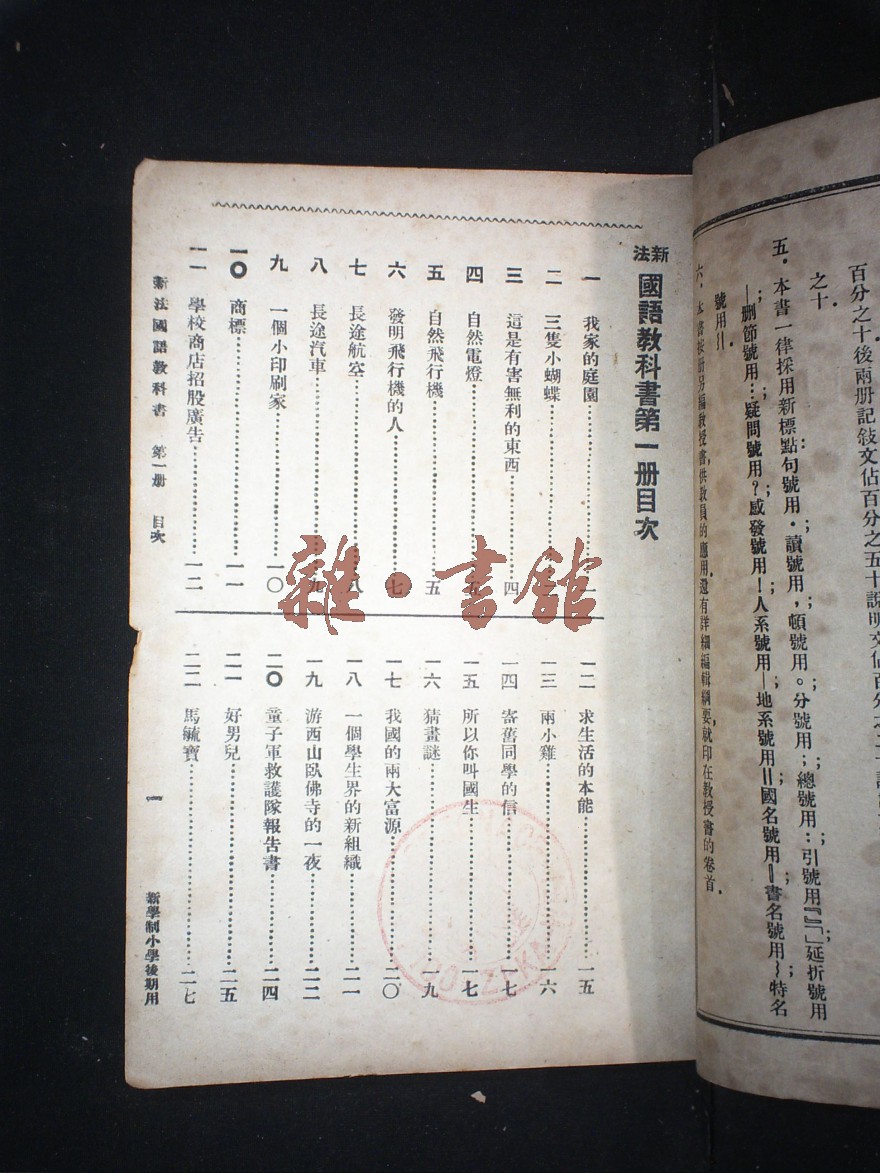 百分之十後兩册記敍文佔百分之五十說明文佔百分之
之十．
五．本書一律採用新標點句號用．讀號用，頓號用。分號用；總號用：引號用『』「」延折號用
—刪節號用…疑問號用？感發號用！人系號用—地系號用‖國名號用‖書名號用﹏特名
號用
六．本書按册另編教授書，供教員的應用還有詳細編輯綱要，就印在教授書的卷首．
新法 國語教科書第一册目次
一 我家的庭園……一
二 三隻小蝴蝶……
三 這是有害無利的東西……四
四 自然電燈……五
五 自然飛行機……五
六 發明飛行機的人……七
七 長途航空……八
八 長途汽車……九
九 一個小印刷家……一〇
一〇 商標……一一
一一 學校商店招股廣告……一二
一二 求生活的本能……一五
一三 兩小雞……一六
一四 寄舊同學的信……一七
一五 所以你叫國生……一七
一六 猜畫謎……一九
一七 我國的兩大富源……二〇
一八 一個學生界的新組織……二一
一九 游西山臥佛寺的一夜……二二
二〇 童子軍救護隊報告書……二四
二一 好男兒……二五
二二 馬毓寶……二七
新法國語教科書 第一册 目次
一
新學制小學後期用
雜·書館